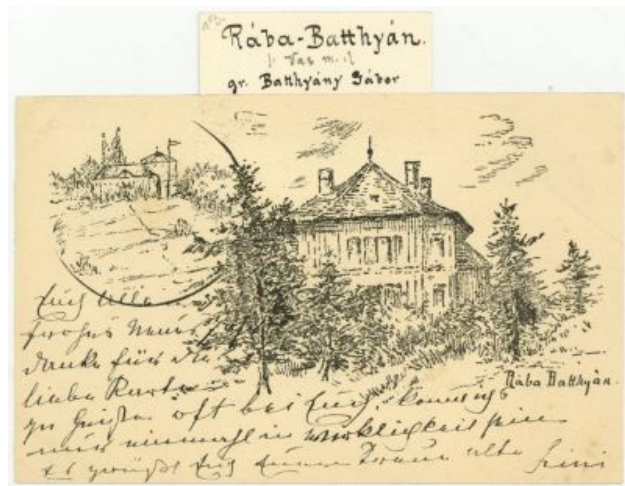 Rába-Batthyán.
/: Vas m. :/
gr. Batthyány Gábor
Rába Batthyán.
Euch Alle
frohes Neues
danke für die
liebe Karte
im Geiste oft bei Euch
nur einmahl in wirkligkeit sein
Es grüßt Euch Eure alte